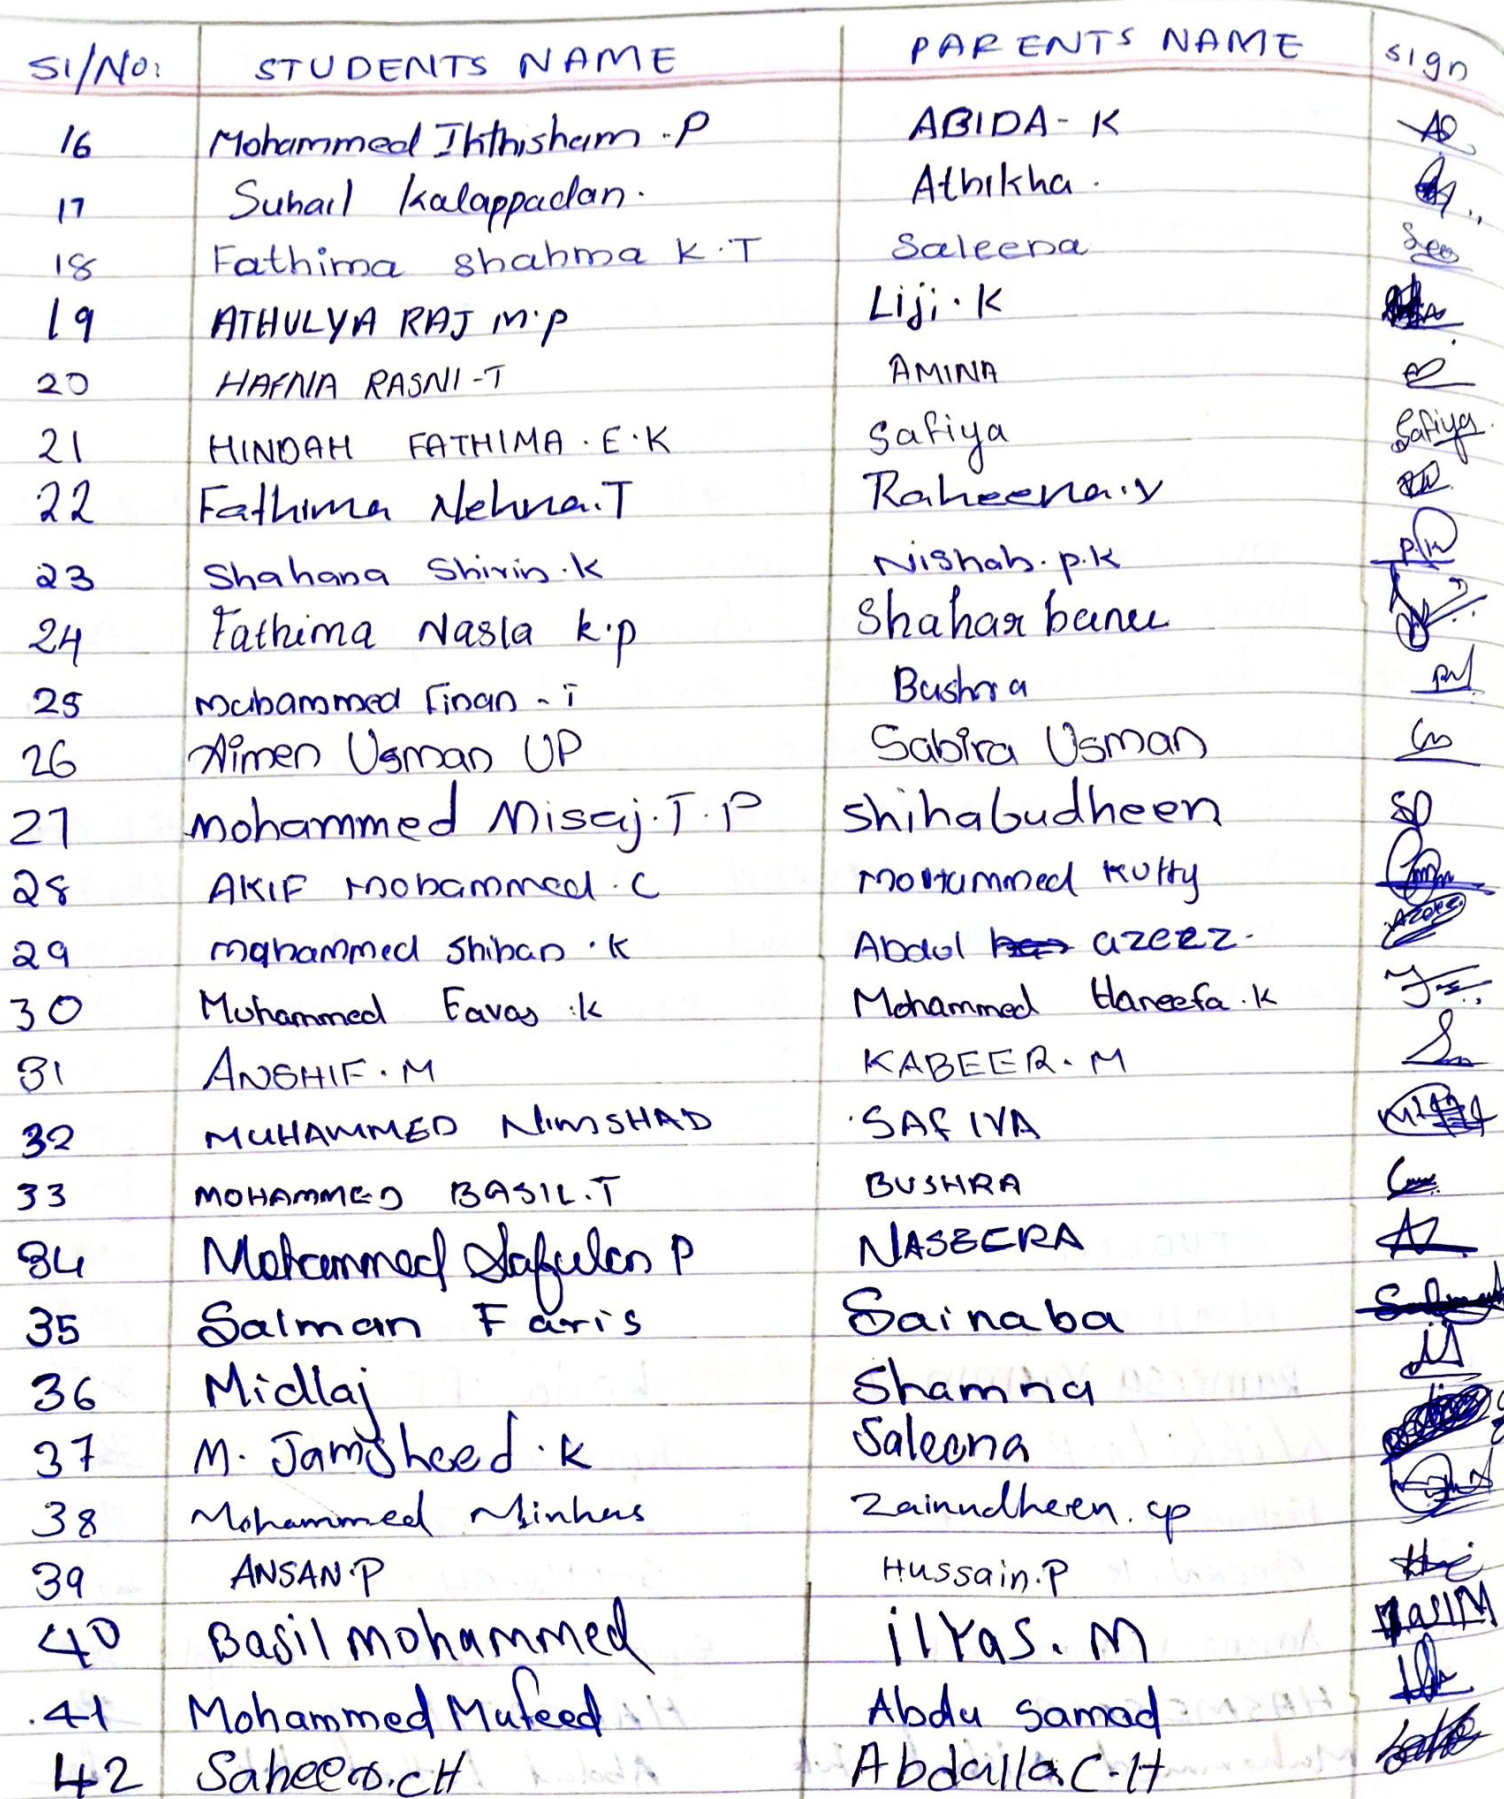 SI/No: STUDENTS NAME PARENTS NAME Sign
16 Mohammed Ihthisham - P ABIDA - K
17 Suhail Kalappadan. Athikha.
18 Fathima Shahma K.T Saleena
19 ATHULYA RAJ M.P Liji.K
20 HAFNA RASNI-T AMINA
21 HINDAH FATHIMA.E.K Safiya Safiya
22 Fathima Nehna.T Raheena.V
23 Shahana Shirin.K Nishab.p.k
24 Fathima Nasla k.p Shahar banu
25 Muhammed Finan - T Bushra
26 Aimen Usman UP Sabira Usman
27 Mohammed Misaj.T.P Shihabudheen
28 AKIF Mohammed.C Mohammed Kutty
29 Mohammed Shihan.K Abdul azeez.
30 Muhammed Favas.K Mohammed Haneefa.K
31 ANSHIF.M KABEER.M
32 MUHAMMED NIMSHAD SAFIYA
33 MOHAMMED BASIL.T BUSHRA
34 Mohammed P NASEERA
35 Salman Faris Sainaba
36 Midlaj Shamna
37 M. Jamsheed.K Saleena
38 Mohammed Minhas Zainudheen.cp
39 ANSAN.P Hussain.P
40 Basil mohammed ilyas.M
41 Mohammed Mufeed Abdu Samad
42 Saheer.CH Abdulla.C.H